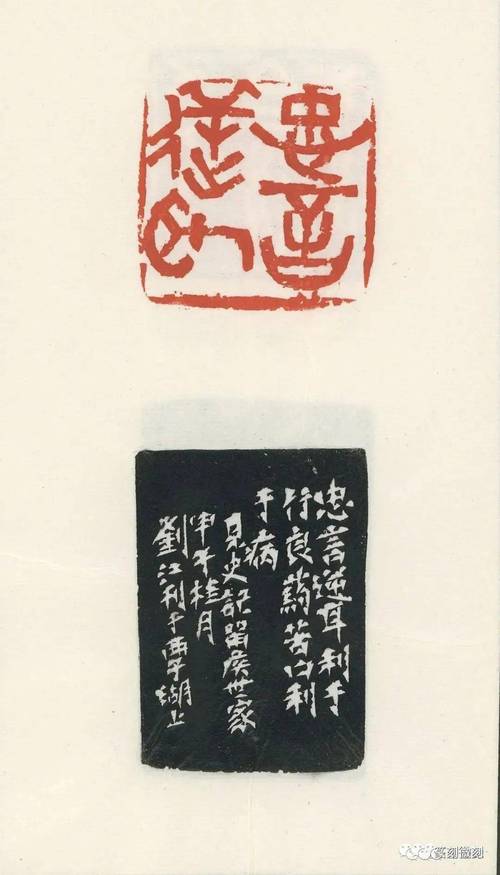 忠言
逆耳
忠言逆耳利于
行良葯苦口利
于病
見史記留侯世家
甲午桂月
劉江刊于西子湖上
篆刻微刻